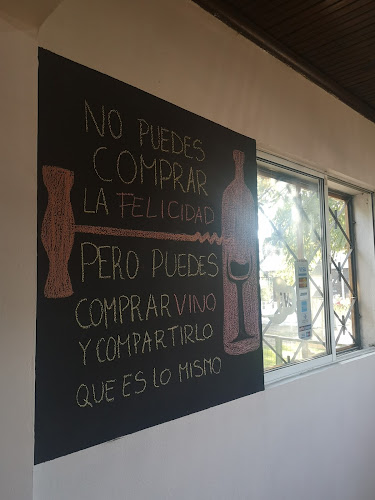 NO PUEDES
COMPRAR
LA FELICIDAD
PERO PUEDES
COMPRAR VINO
Y COMPARTIRLO
QUE ES LO MISMO